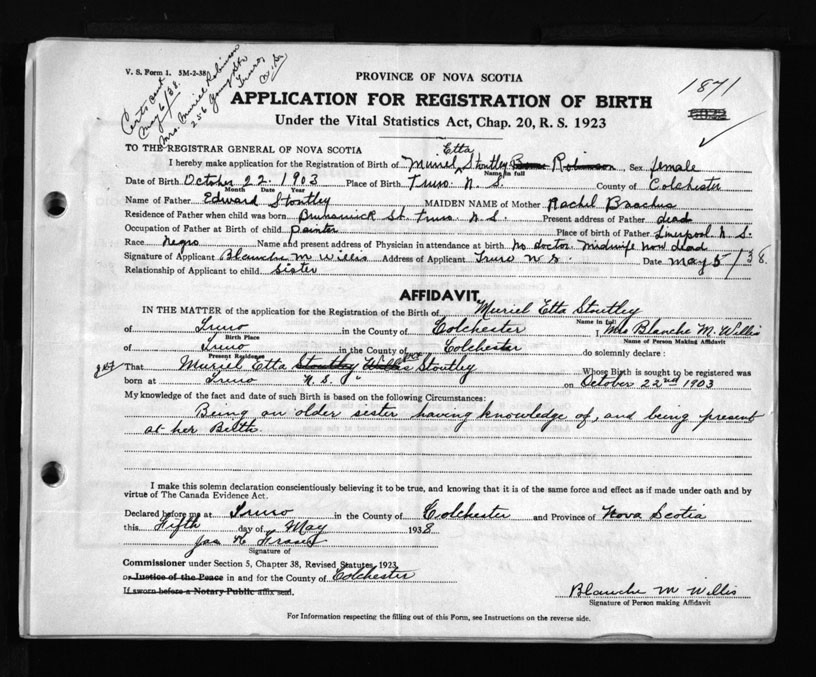 V. S. Form 1. 5M-2-38
Certs sent
May 6/38.
Mrs. Muriel Robinson
256 Young St.
Truro,
N.S.
1871
PROVINCE OF NOVA SCOTIA
APPLICATION FOR REGISTRATION OF BIRTH
Under the Vital Statistics Act, Chap. 20, R. S. 1923
TO THE REGISTRAR GENERAL OF NOVA SCOTIA
Etta
I hereby make application for the Registration of Birth of Muriel Stoutley Robinson, Sex female
Name in full
Date of Birth October 22. 1903 Place of Birth Truro N. S. County of Colchester
Month Date Year
Name of Father Edward Stoutley MAIDEN NAME of Mother Rachel Baachus
Residence of Father when child was born Brunswick St. Truro N. S. Present address of Father dead
Occupation of Father at Birth of child painter Place of birth of Father Liverpool N. S.
Race Negro Name and present address of Physician in attendance at birth No doctor. Midwife now dead
Signature of Applicant Blanche M Willis Address of Applicant Truro N S. Date May 5/38.
Relationship of Applicant to child sister
AFFIDAVIT
IN THE MATTER of the application for the Registration of the Birth of Muriel Etta Stoutley
Name in full
of Truro in the County of Colchester I, Mrs Blanche M. Willis
Birth Place Name of Person Making Affidavit
of Truro in the County of Colchester do solemnly declare :
Present Residence
That Muriel Etta Stoutley Willis Stoutley Whose Birth is sought to be registered was
born at Truro N. S. on October 22nd 1903
My knowledge of the fact and date of such Birth is based on the following Circumstances:
Being an older sister having knowledge of, and being present
at her Birth.
I make this solemn declaration conscientiously believing it to be true, and knowing that it is of the same force and effect as if made under oath and by
virtue of The Canada Evidence Act.
Declared before me at Truro in the County of Colchester and Province of Nova Scotia
this Fifth day of May 1938
Jas H. Fraser
Signature of
Commissioner under Section 5, Chapter 38, Revised Statutes, 1923
or Justice of the Peace in and for the County of Colchester
If sworn before a Notary Public affix seal.
Blanche M Willis
Signature of Person making Affidavit
For Information respecting the filling out of this Form, see Instructions on the reverse side.